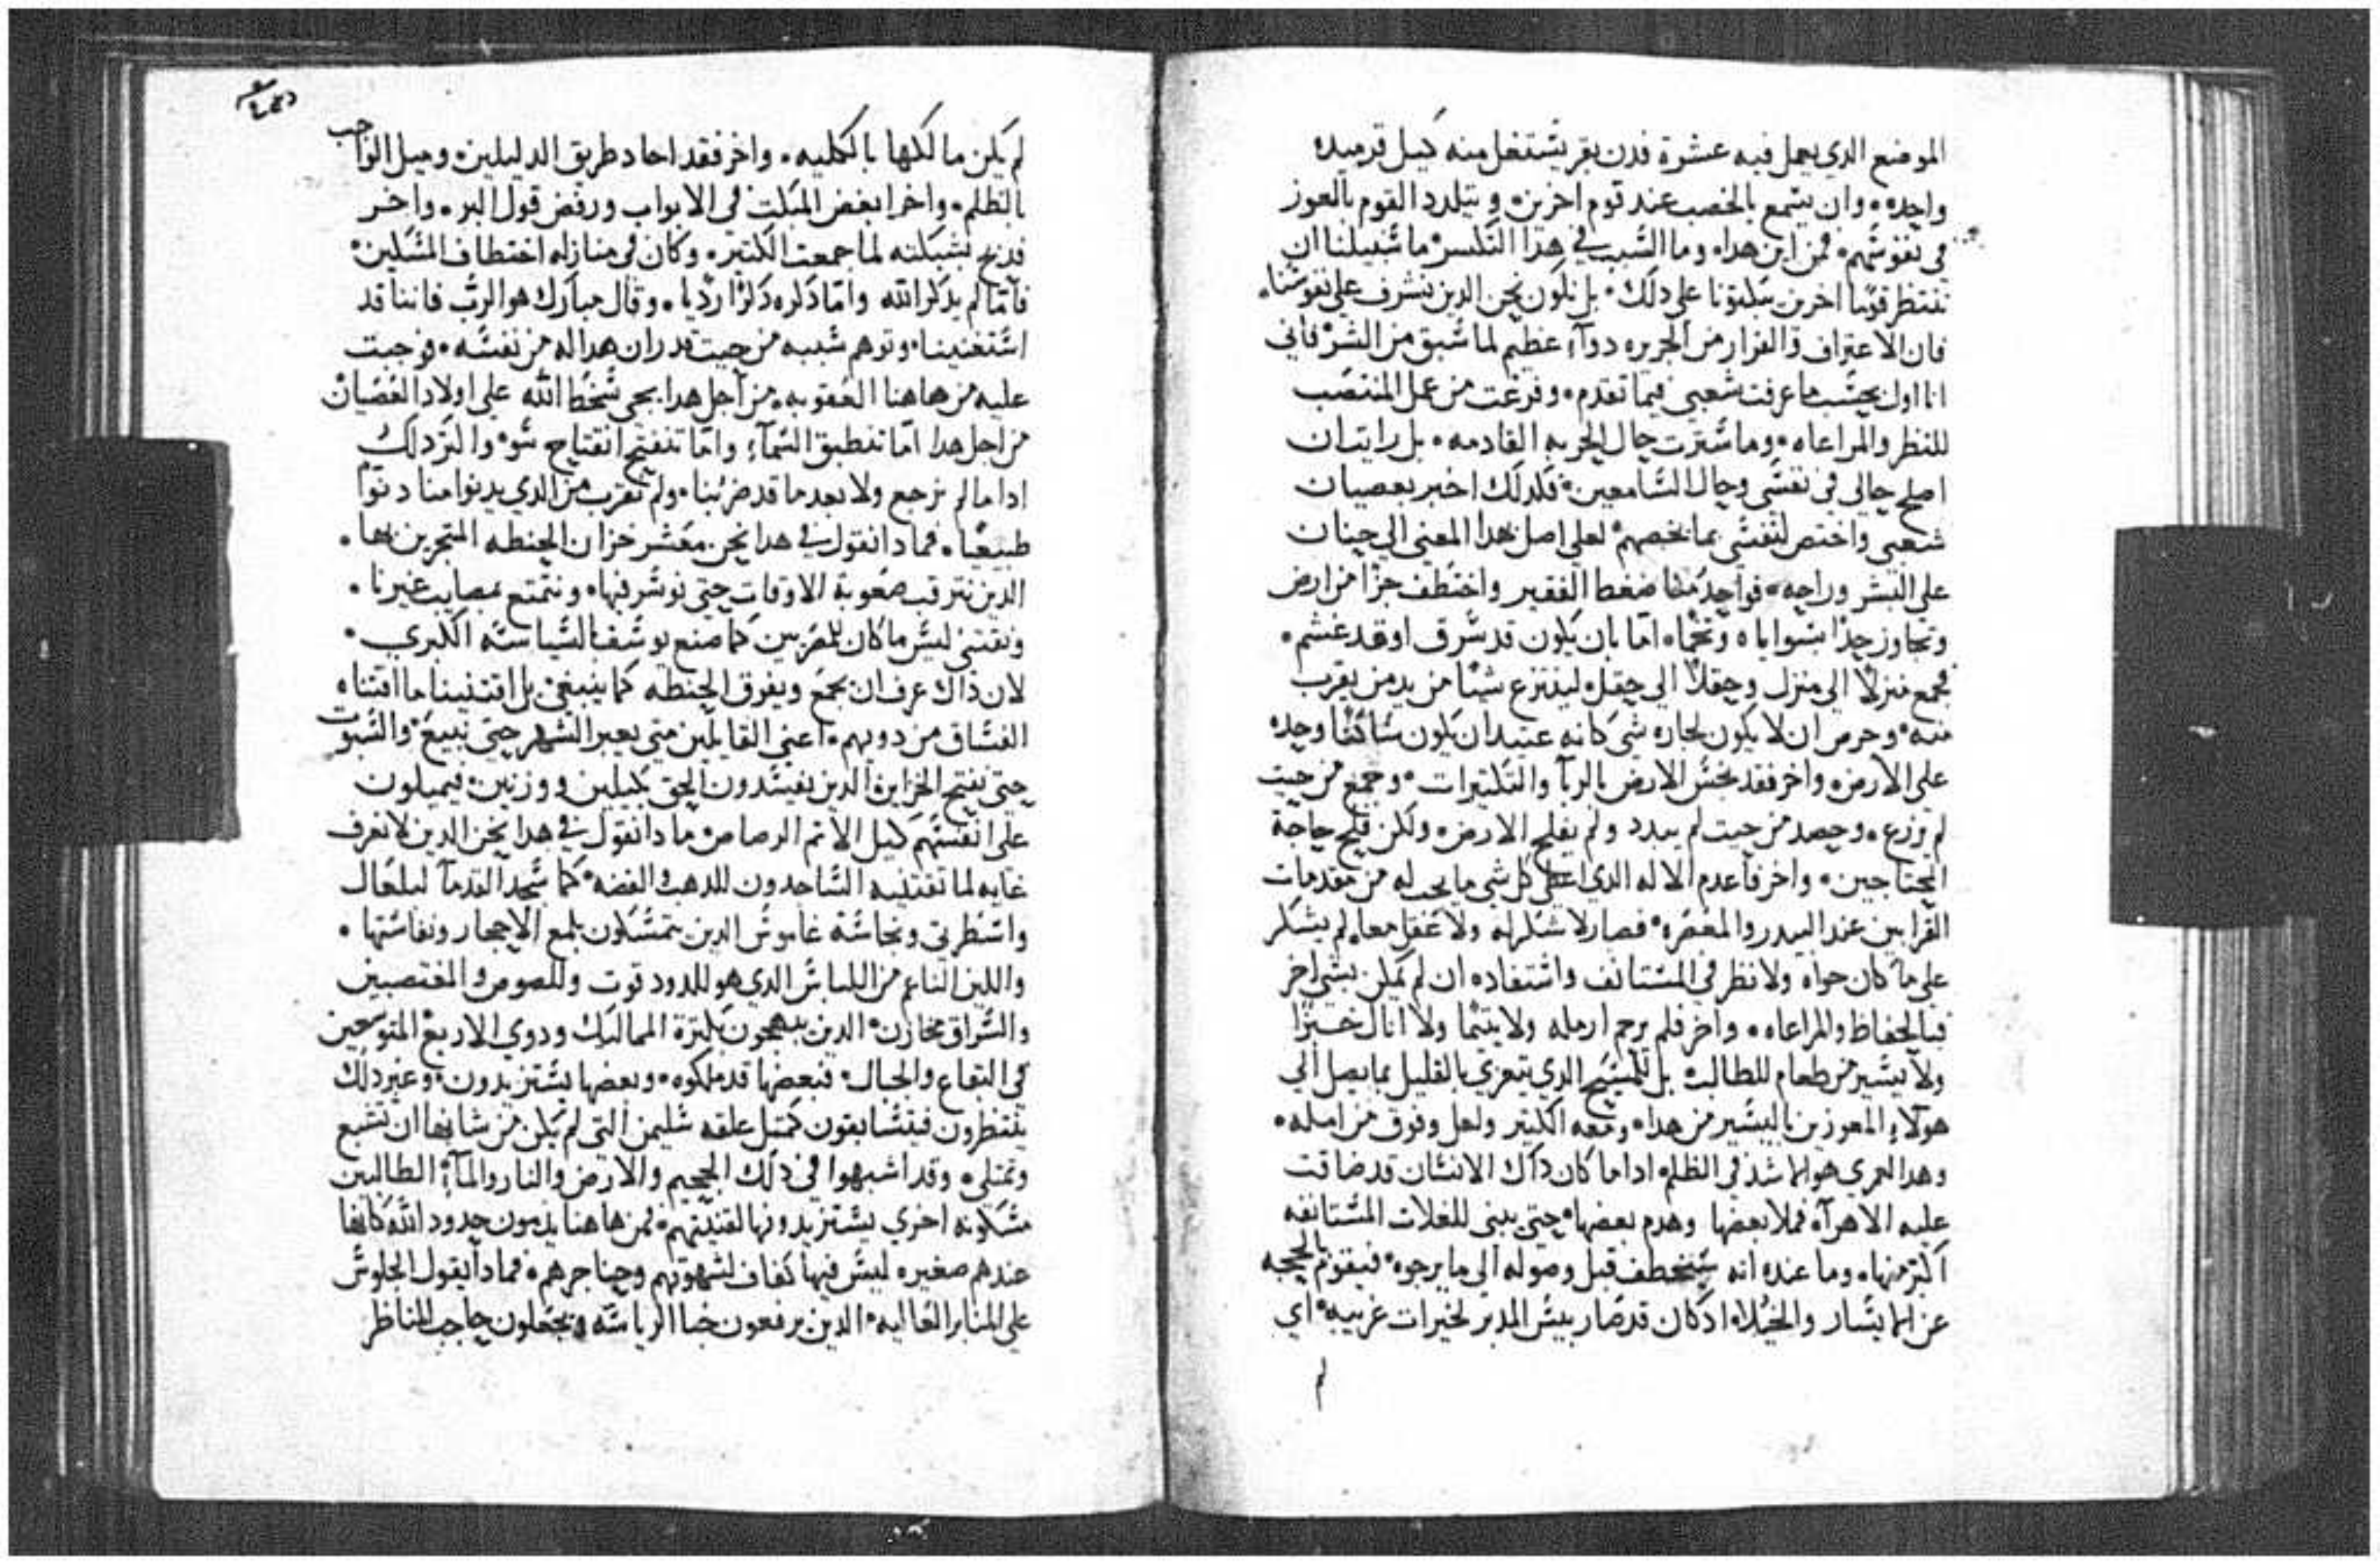 الموضع الدي يعمل فيه عشرة فدن بقر يشتغل منه كيل قرميده
واحده، وان يسمع بالخصب عند قوم اخرين، و يتلدد القوم بالعوز
في نفوسهم، فمن اين هدا، وما السبب في هدا التكسر، ما سبيلنا ان
ننتظر قومًا اخرين يبكتونا علي دلك، بل نكون نحن الدين نشرف علي نفوسنا،
فان الاعتراف والفرار من الجريره دوآء عظيم لما سبق من الشر، فاني
انا اول بحسب ما عرفت شعبي فيما تقدم، وفرغت من عمل المنتصب
للنظر والمراعاه، وما سترت حال الحربه القادمه، بل رايت ان
اصلح حالي في نفسي وحال السامعين، فلدلك اخبر بعصيان
شعبي واختص لنفسي بما يخصهم، لعلي اصل بهدا المعني الي حنان
علي البشر وراحه، فواحد منا ضغط الفقير واختطف جزًا من ارض
وتجاوز حدًا سواياه وتخما، امّا بان يكون قد سرق او قد غشم،
فجمع منزلًا الي منزل وحقلًا الي حقل، لينتزع شيًا من يد من يقرب
منه، وحرص ان لا يكون لجاره شي كانه عتيد ان يكون ساكنًا وحده
علي الارض، واخر فقد نجس الارض بالربآ والتكتيرات، وجمع من حيت
لم يزرع، وحصد من حيت لم يبدد ولم يفلح الارض، ولكن فلح حاجة
المحتاجين، واخر فاعدم الاله الدي اعطي كل شي ما يجب له من مقدمات
القرابين عند البيدر والمعصره، فصار لا شكر له ولا عقل معا، لم يشكر
علي ما كان حواه ولا نظر في المستانف واستفاده ان لم يكن بشي اخر
فبالحفاظ والمراعاه، واخر فلم يرحم ارمله ولا يتيمًا ولا انال خبزًا
ولا يسير من طعام للطالب، بل للمسيح الدي يتعزي بالقليل بما يصل الي
هولآء المعوزين باليسير من هدا، ومعه الكتير ولعل وفوق من امله،
وهدا لعمري هو اشد في الظلم، ادا ما كان داك الانسان قد ضاقت
عليه الاهرآء فملا بعضها وهدم بعضها، حتي يبني للغلات المستانفه
اكبر منها، وما عنده انه سيختطف قبل وصوله الي ما يرجوه، فيقوم بالحجه
عن اليسار والخيلاء اد كان قد صار بيس المدبر لخيرات غريبه، اي
لم
لم يكن مالكها بالكليه، واخر فقد احاد طريق الدليلين، وميل الواجب
بالظلم، واخر ابغض المبكت في الابواب ورفض قول البر، واخر
فدبح لشبكته لما جمعت الكتير، وكان في منازله اختطاف المسكين،
فامّا لم يدكر الله وامّا دكره دكرًا رديا، وقال مبارك هو الرب فاننا قد
استغنينا، وتوهم سببه من حيت قدر ان هدا له من نفسه، فوجبت
عليه من هاهنا العقوبه، من اجل هدا يجي سخط الله علي اولاد العصيان
من اجل هدا امّا تنطبق السمآء وامّا تنفتح انفتاح سو، والتر دلك
ادا ما لم نرجع ولا بعد ما قد ضربنا، ولم نقرب من الدي يدنوا منا دنوًا
طبيعيًا، فمادا نقول في هدا نحن معشر خزان الحنطه المتجرين بها،
الدين نترقب صعوبة الاوقات حتي نوسر فيها، ونتمتع بمصايب غيرنا،
ونقتني ليس ما كان للمصريين كما صنع يوسف بالسياسه الكبري،
لان داك عرف ان يجمع ويفرق الحنطه كما ينبغي، بل اقتنينا ما اقتناه
الفساق من دويهم، اعني القايلين متي يعبر الشهر حتي نبيع، والسبوت
حتي نفتح الخزاين، الدين يفسدون الحق بكيلين ووزنين، فيميلون
علي انفسهم كيل الاتم الرصاص، مادا نقول في هدا نحن الدين لا نعرف
غايه لما نقتنيه الساجدون للدهب والفضه، كما سجد القدمآ لبلعال
واسطرتي ونجاسة غاموش الدين يتمسكون بلمع الاحجار ونفاستها،
واللين الناعم من اللباس الدي هو للدود قوت وللصوص والمغتصبين
والسراق مخازن، الدين يبتهجون بكترة المماليك ودوي الاربع المتوسعين
في البقاع والجبال، فبعضها قد ملكوه، وبعضها يستزيدون، وغير دلك
ينتظرون فيتسابقون كمتل علقه سليمن التي لم يكن من شانها ان تشبع
وتمتلي، وقد اشبهوا في دلك الجحيم والارض والنار والمآء، الطالبين
مسكونه اخري يستزيدونها لقنيتهم، فمن هاهنا يدمون حدود الله كانها
عندهم صغيره ليس فيها كفاف لشهوتهم وحناجرهم، فمادا يقول الجلوس
علي المنابر العاليه، الدين يرفعون خبا الرياسه، ويجعلون حاجب المناظر